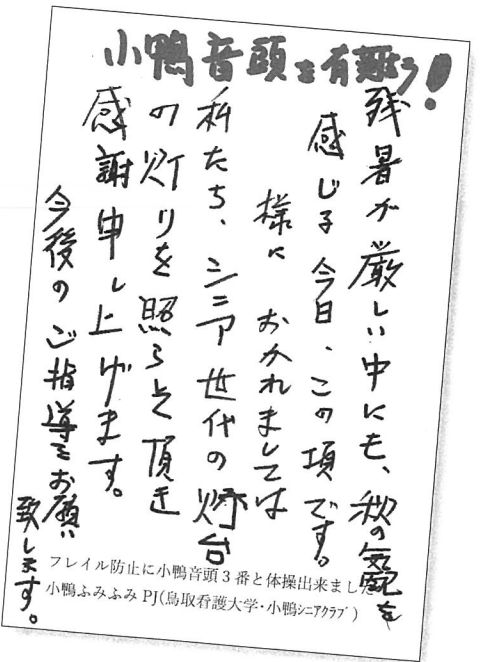 小鴨音頭を有難う!
残暑が厳しい中にも、秋の気配を
感じる今日、この項です。
様に おかれましては
私たち、シニア世代の灯台
の灯りを照らして頂き
感謝申し上げます。
今後のご指導をお願い
致します。
フレイル防止に小鴨音頭3番と体操出来ました
小鴨ふみふみPJ(鳥取看護大学・小鴨シニアクラブ)